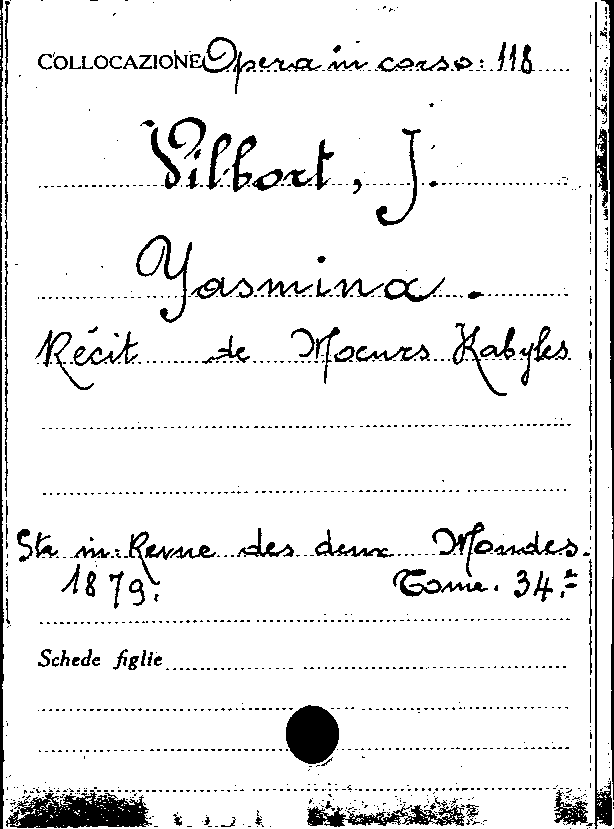 COLLOCAZIONE Opera in corso: 118
Vilbort, J.
Yasmina.
Récit de Moeurs Kabyles
Sta in: Revue des deux Mondes.
1879. Tome. 34.º
Schede figlie